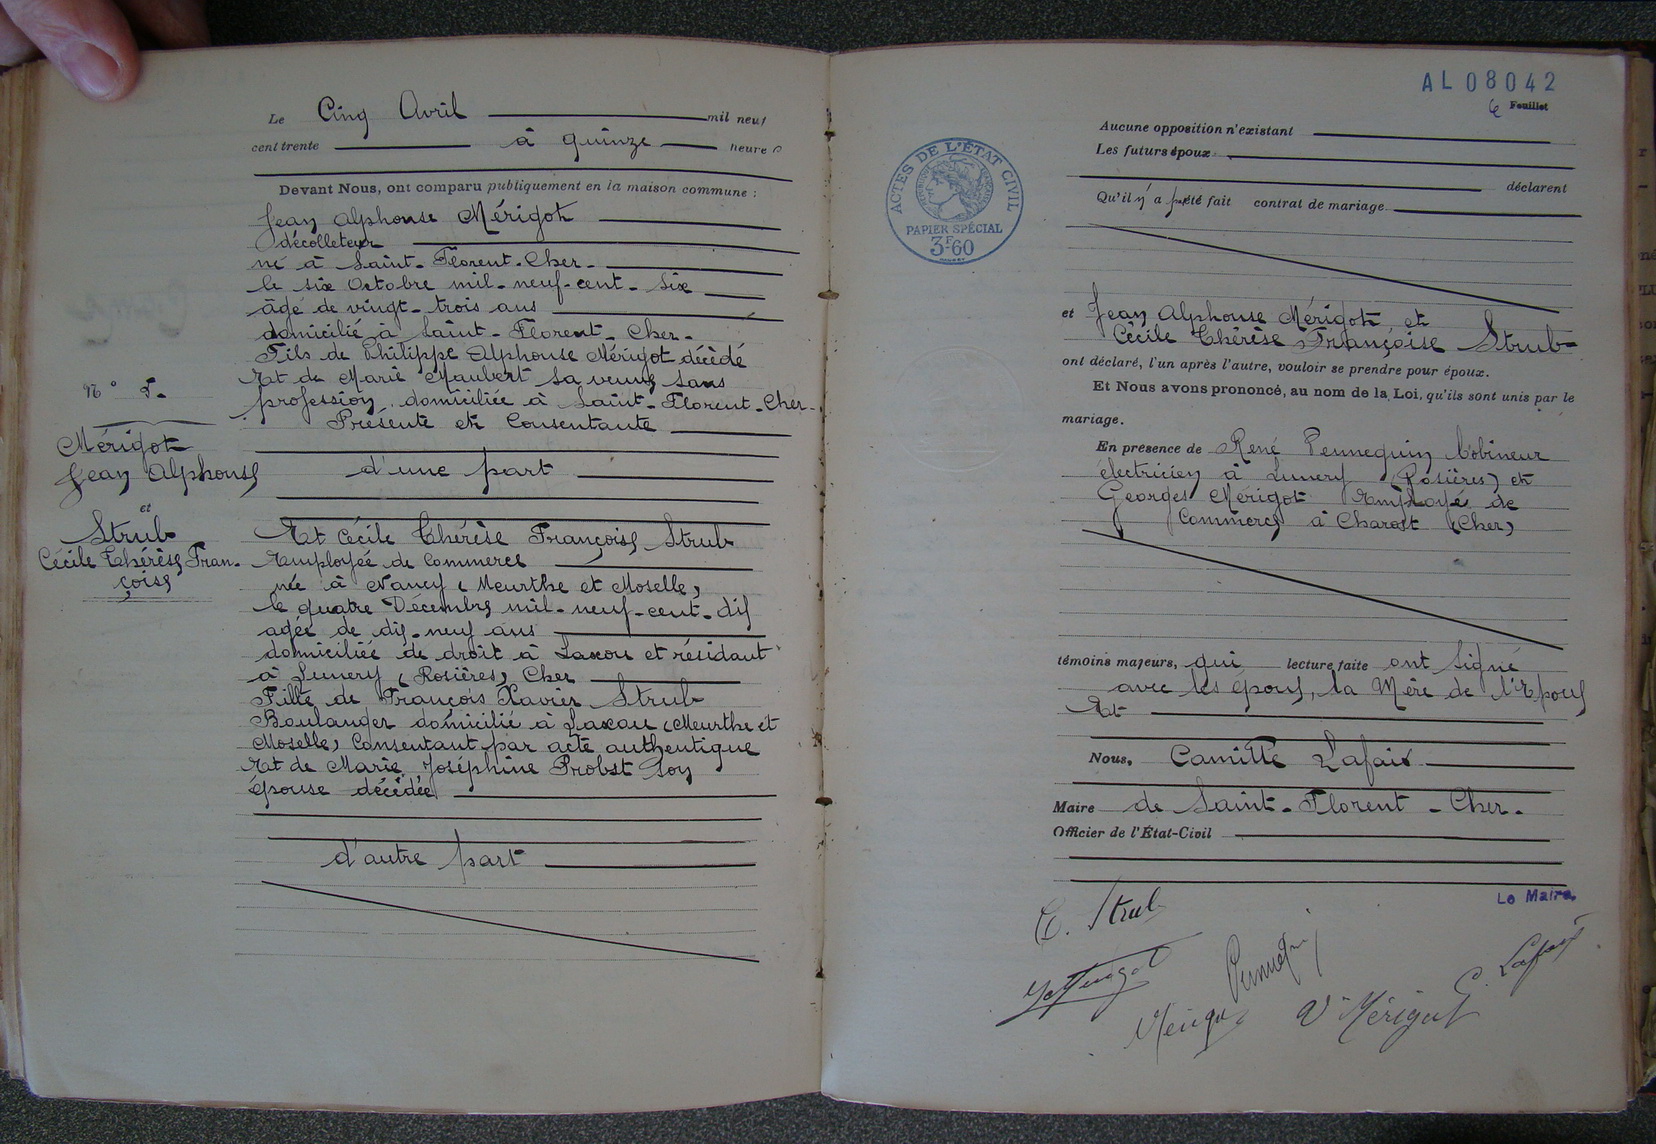 Le Cinq Avril mil neuf
cent trente à quinze heures
Devant Nous, ont comparu publiquement en la maison commune :
Jean Alphonse Mérigot
décolleteur
né à Saint-Florent-Cher-
le six Octobre mil-neuf-cent-six
âgé de vingt-trois ans
domicilié à Saint-Florent-Cher-
Fils de Philippe Alphonse Mérigot décédé
Et de Marie Maubert sa veuve sans
profession, domiciliée à Saint-Florent-Cher-
Présente et Consentante
d'une part
N° 5.
Mérigot
Jean Alphonse
et
Strub
Cécile Thérèse Fran-
çoise
Et Cécile Thérèse Françoise Strub
Employée de Commerce
née à Nancy (Meurthe et Moselle)
le quatre Décembre mil-neuf-cent-dix
agée de dix-neuf ans
domiciliée de droit à Laxou et résidant
à Lunery (Rosières) Cher
Fille de François Xavier Strub
Boulanger domicilié à Laxou (Meurthe et
Moselle) Consentant par acte authentique
Et de Marie Joséphine Probst son
épouse décédée
d'autre part
AL 08042
6 Feuillet
ACTES DE L'ÉTAT CIVIL
PAPIER SPÉCIAL
3F60
Aucune opposition n'existant
Les futurs époux
déclarent
Qu'il n'y a pas été fait contrat de mariage
et Jean Alphonse Mérigot et
Cécile Thérèse Françoise Strub
ont déclaré, l'un après l'autre, vouloir se prendre pour époux.
Et Nous avons prononcé, au nom de la Loi, qu'ils sont unis par le
mariage.
En presence de René Pennequin bobineur
électricien à Lunery (Rosières) et
Georges Mérigot Employé de
Commerce à Charost (Cher)
témoins majeurs, qui lecture faite ont signé
avec les époux, la Mère de l'Epoux
Et
Nous, Camille Lafaix
Maire de Saint-Florent-Cher-
Officier de l'État-Civil
Le Maire,
C. Strub
Mérigot
Vve Mérigot
C. Lafaix